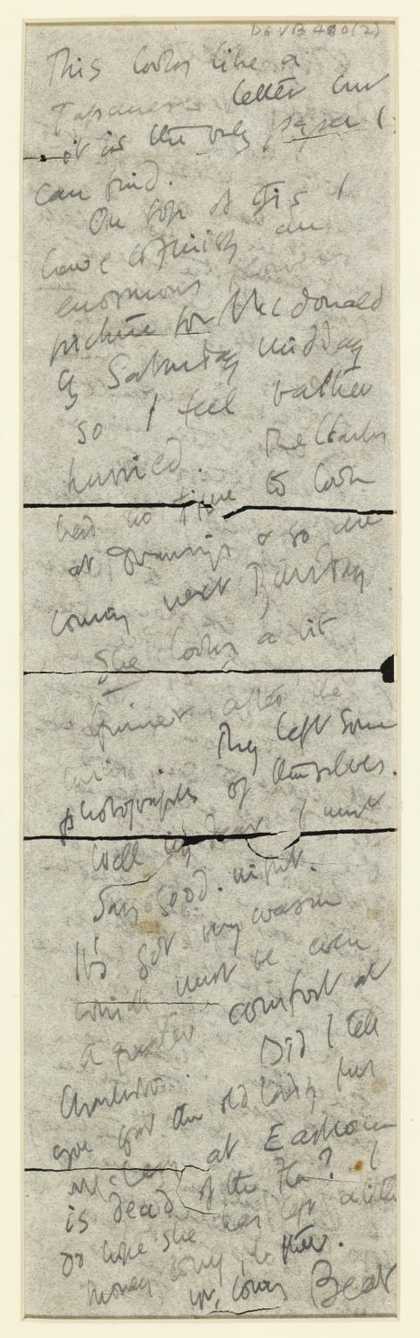 DGVB 480(2)
This looks like a
Japanese letter but
it is the only paper I
can find.
On top of this I
have to finish an
enormous flower
picture for McDonald
by Saturday midday
so I feel rather
hurried. The Clarks
had no time to look
at drawings & so are
coming next Tuesday
She looks a bit
after the
They left some
photographs of themselves.
Well my dear I must
say good-night.
It's got very warm
which must be even
a greater comfort at
Charleston. Did I tell
you that the old lady
at Eastbourne
is dead of the flu? I
do hope she has left a little
money
yr. loving Bear